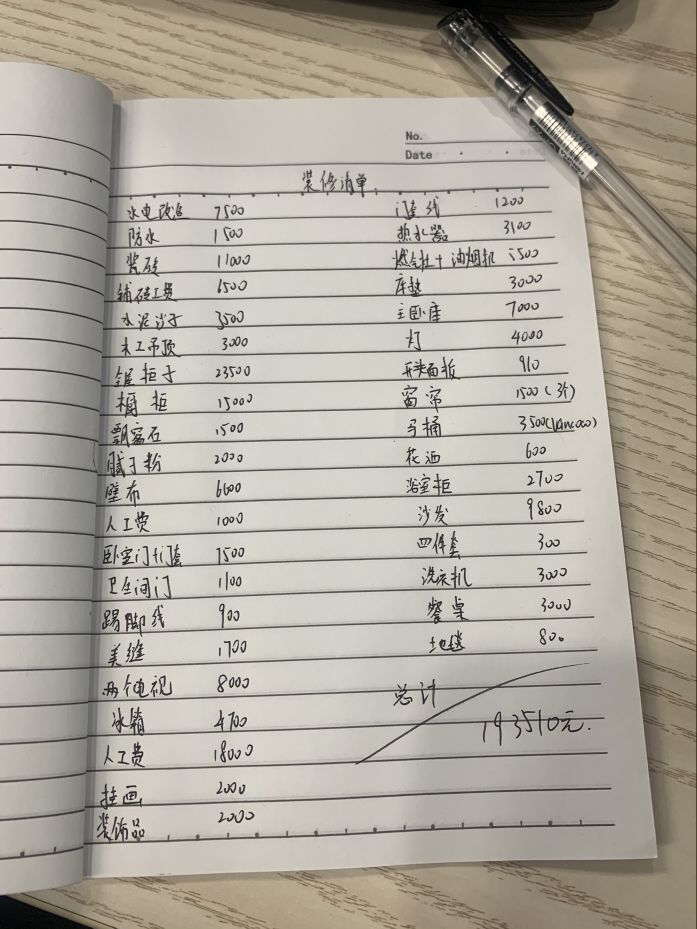 No.
Date
装修清单
水电改造 7500
防水 1500
瓷砖 11000
铺砖工费 6500
水泥沙子 3500
木工吊顶 3000
全屋柜子 23500
橱柜 15000
飘窗石 1500
腻子粉 2000
壁布 6600
人工费 1000
卧室门+门套 7500
卫生间门 1100
踢脚线 900
美缝 1700
两个电视 8000
冰箱 4700
人工费 18000
挂画 2000
装饰品 2000
门套线 1200
热水器 3100
燃气灶+油烟机 5500
床垫 3000
主卧床 7000
灯 4000
开关面板 910
窗帘 1500(3个)
马桶 3500
花洒 600
浴室柜 2700
沙发 9800
四件套 300
洗衣机 3000
餐桌 3000
地毯 800
总计
193510元.